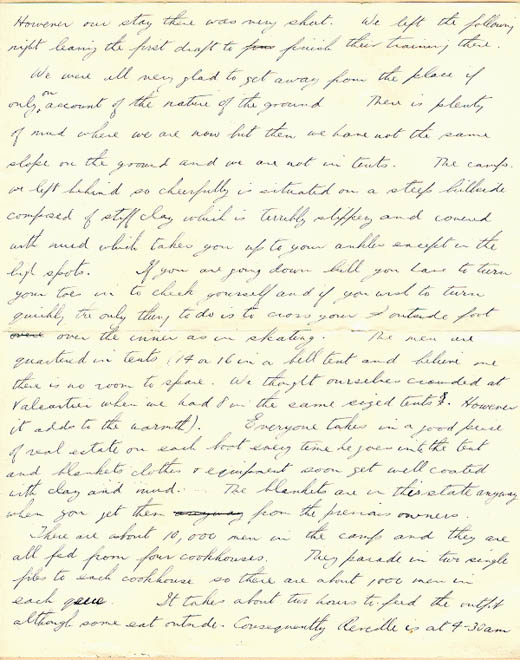 However our stay there was very short. We left the following
night leaving the first draft to finish their training there.
We were all very glad to get away from the place if
only on account of the nature of the ground There is plenty
of mud where we are now but then we have not the same
slope on the ground and we are not in tents. The camp
we left behind so cheerfully is situated on a steep hillside
composed of stiff clay which is terribly slippery and covered
with mud which takes you up to your ankles except in the
high spots. If you are going down hill you have to turn
your toes in to check yourself and if you wish to turn
quickly the only thing to do is to cross your outside foot
over the inner as in skating. The men are
quartered in tents (14 or 16 in a bell tent and believe me
there is no room to spare. We thought ourselves crowded at
Valcartier when we had 8 in the same sized tents. However
it adds to the warmth). Everyone takes in a good piece
of real estate on each boot every time he goes into the tent
and blankets clothes & equipment soon get well coated
with clay and mud. The blankets are in this state anyway
when you get them anyway from the previous owners.
There are about 10,000 men in the camp and they are
all fed from four cookhouses. They parade in two single
files to each cookhouse so there are about 1000 men in
each queue. It takes about two hours to feed the outfit
although some eat outside. Consequently Reveille is at 4-30am